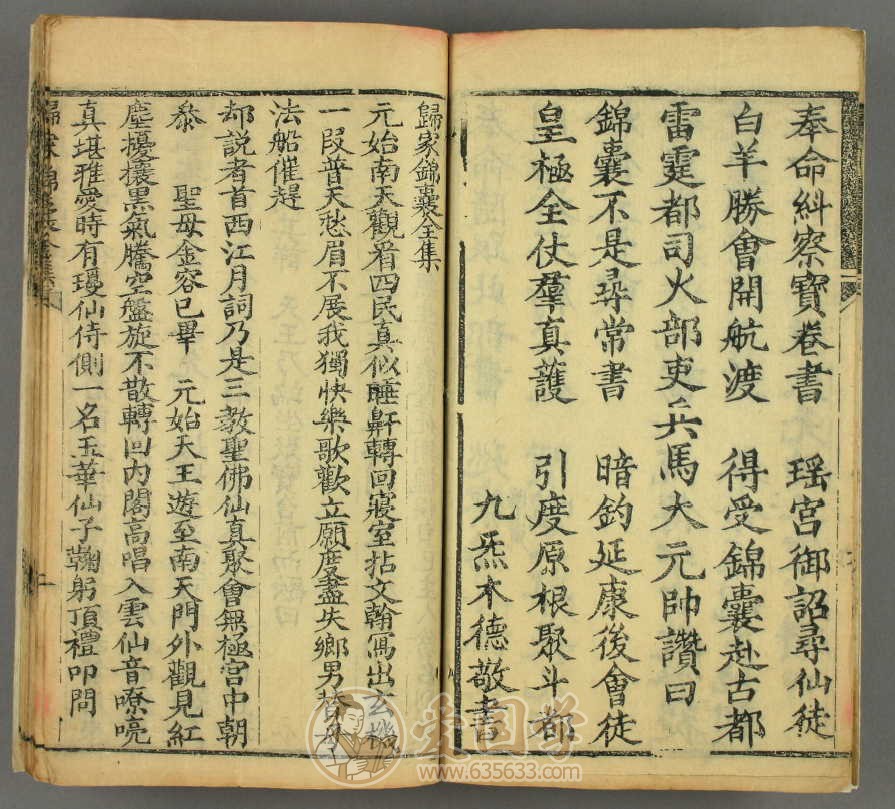 奉命糾察寶卷書　瑶宮御詔尋仙徒
白羊勝會開航渡　得受錦囊赴古都
雷霆都司火部吏兵馬大元帥讚曰
錦囊不是尋常書　暗釣延康後會徒
皇極全仗羣真護　引度原根聚斗都
九炁木德敬書
歸家錦囊全集
元始南天觀看四民真似睡鼾轉回寢室拈文翰寫出玄機
一段普天愁眉不展我獨快樂歌歡立願度盡失鄉男
法船催趕
却説者首西江月詞乃是三教聖佛仙真聚會無極宮中朝
叅　聖母金容已畢　元始天王遊至南天門外觀見紅
塵擾攘黑氣騰空盤旋不散轉回內閣高唱入雲仙音嘹喨
真堪雅愛時有瓊仙侍側一名玉華仙子鞠躬頂禮叩問
歸家錦囊全集
爱国学
www.635633.com